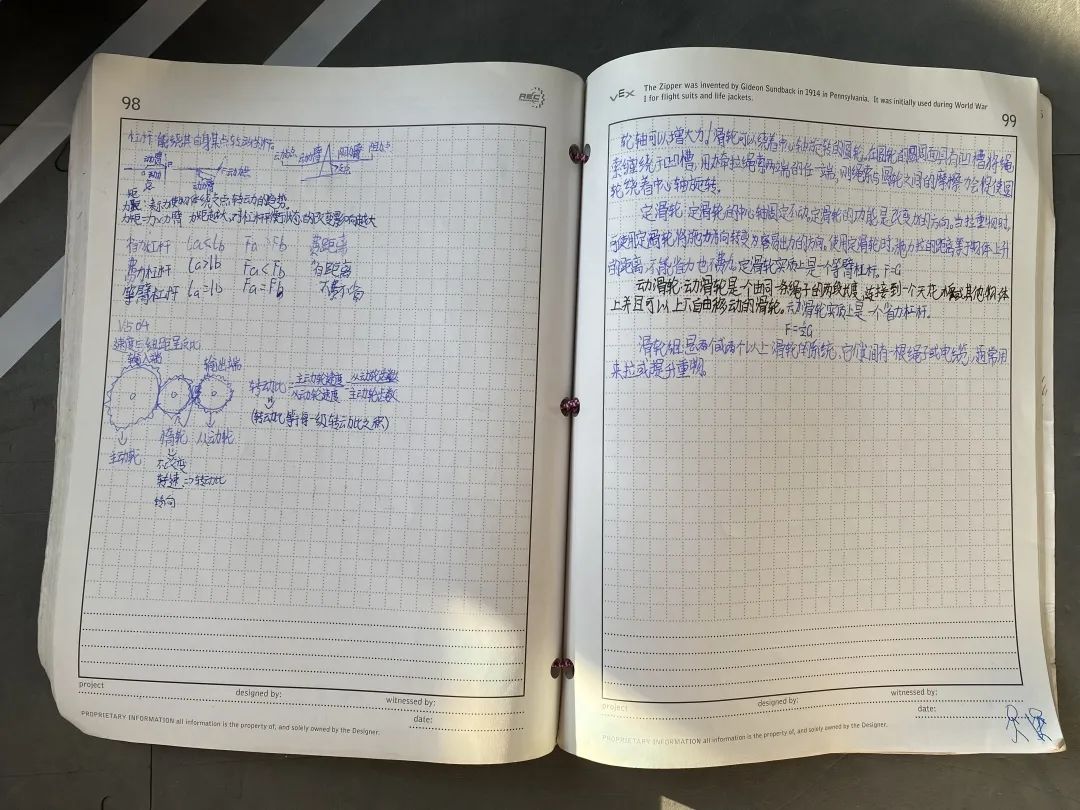 98
REC
杠杆:能绕其自身某点转动的杆。
动臂
阻臂
阻点
动点
支点
动臂
力矩:表示力使物体绕支点转动的趋势。
力矩=力×力臂 力距越大,对杠杆平衡状态的改变影响越大
省力杠杆 La<Lb Fa>Fb 费距离
费力杠杆 La>Lb Fa<Fb 省距离
等臂杠杆 La=Lb Fa=Fb 不费不省
速度与扭距呈反比
输入端 输出端
转动比=主动轮速度 从动轮齿数
从动轮速度 主动轮齿数
(转动比等于每一级转动比之积)
惰轮 从动轮
主动轮
不改变
转速=>转动比
转向
project
designed by:
witnessed by:
date:
PROPRIETARY INFORMATION all information is the property of, and solely owned by the Designer.
VEX
The Zipper was invented by Gideon Sundback in 1914 in Pennsylvania. It was initially used during World War
I for flight suits and life jackets.
99
轮轴可以增大力!滑轮可以绕着中心轴旋转的圆轮。在圆轮的圆周面间有凹槽,将绳
索缠绕于凹槽,用力牵拉绳索两端的任一端,则绳索与圆轮之间的摩擦力会促使圆
轮绕着中心轴旋转。
定滑轮:定滑轮的中心轴固定不动,定滑轮的功能是改变力的方向。当拉重物时,
可使用定滑轮将施力方向转变为容易出力的方向。使用定滑轮时,施力拉的距离等于物体上升
的距离,不能省力也不费力。定滑轮实质上是一个等臂杠杆。F=G
动滑轮:动滑轮是一个由同一条绳子的两段长度,连接到一个天花板或其他物体
上并且可以上下自由移动的滑轮。动滑轮实质上是一个省力杠杆。
F=½G
滑轮组:是两个或两个以上滑轮的系统,它们之间有一根绳子或电缆,通常用
来拉或提升重物。
project
designed by:
witnessed by:
date:
PROPRIETARY INFORMATION all information is the property of, and solely owned by the Designer.